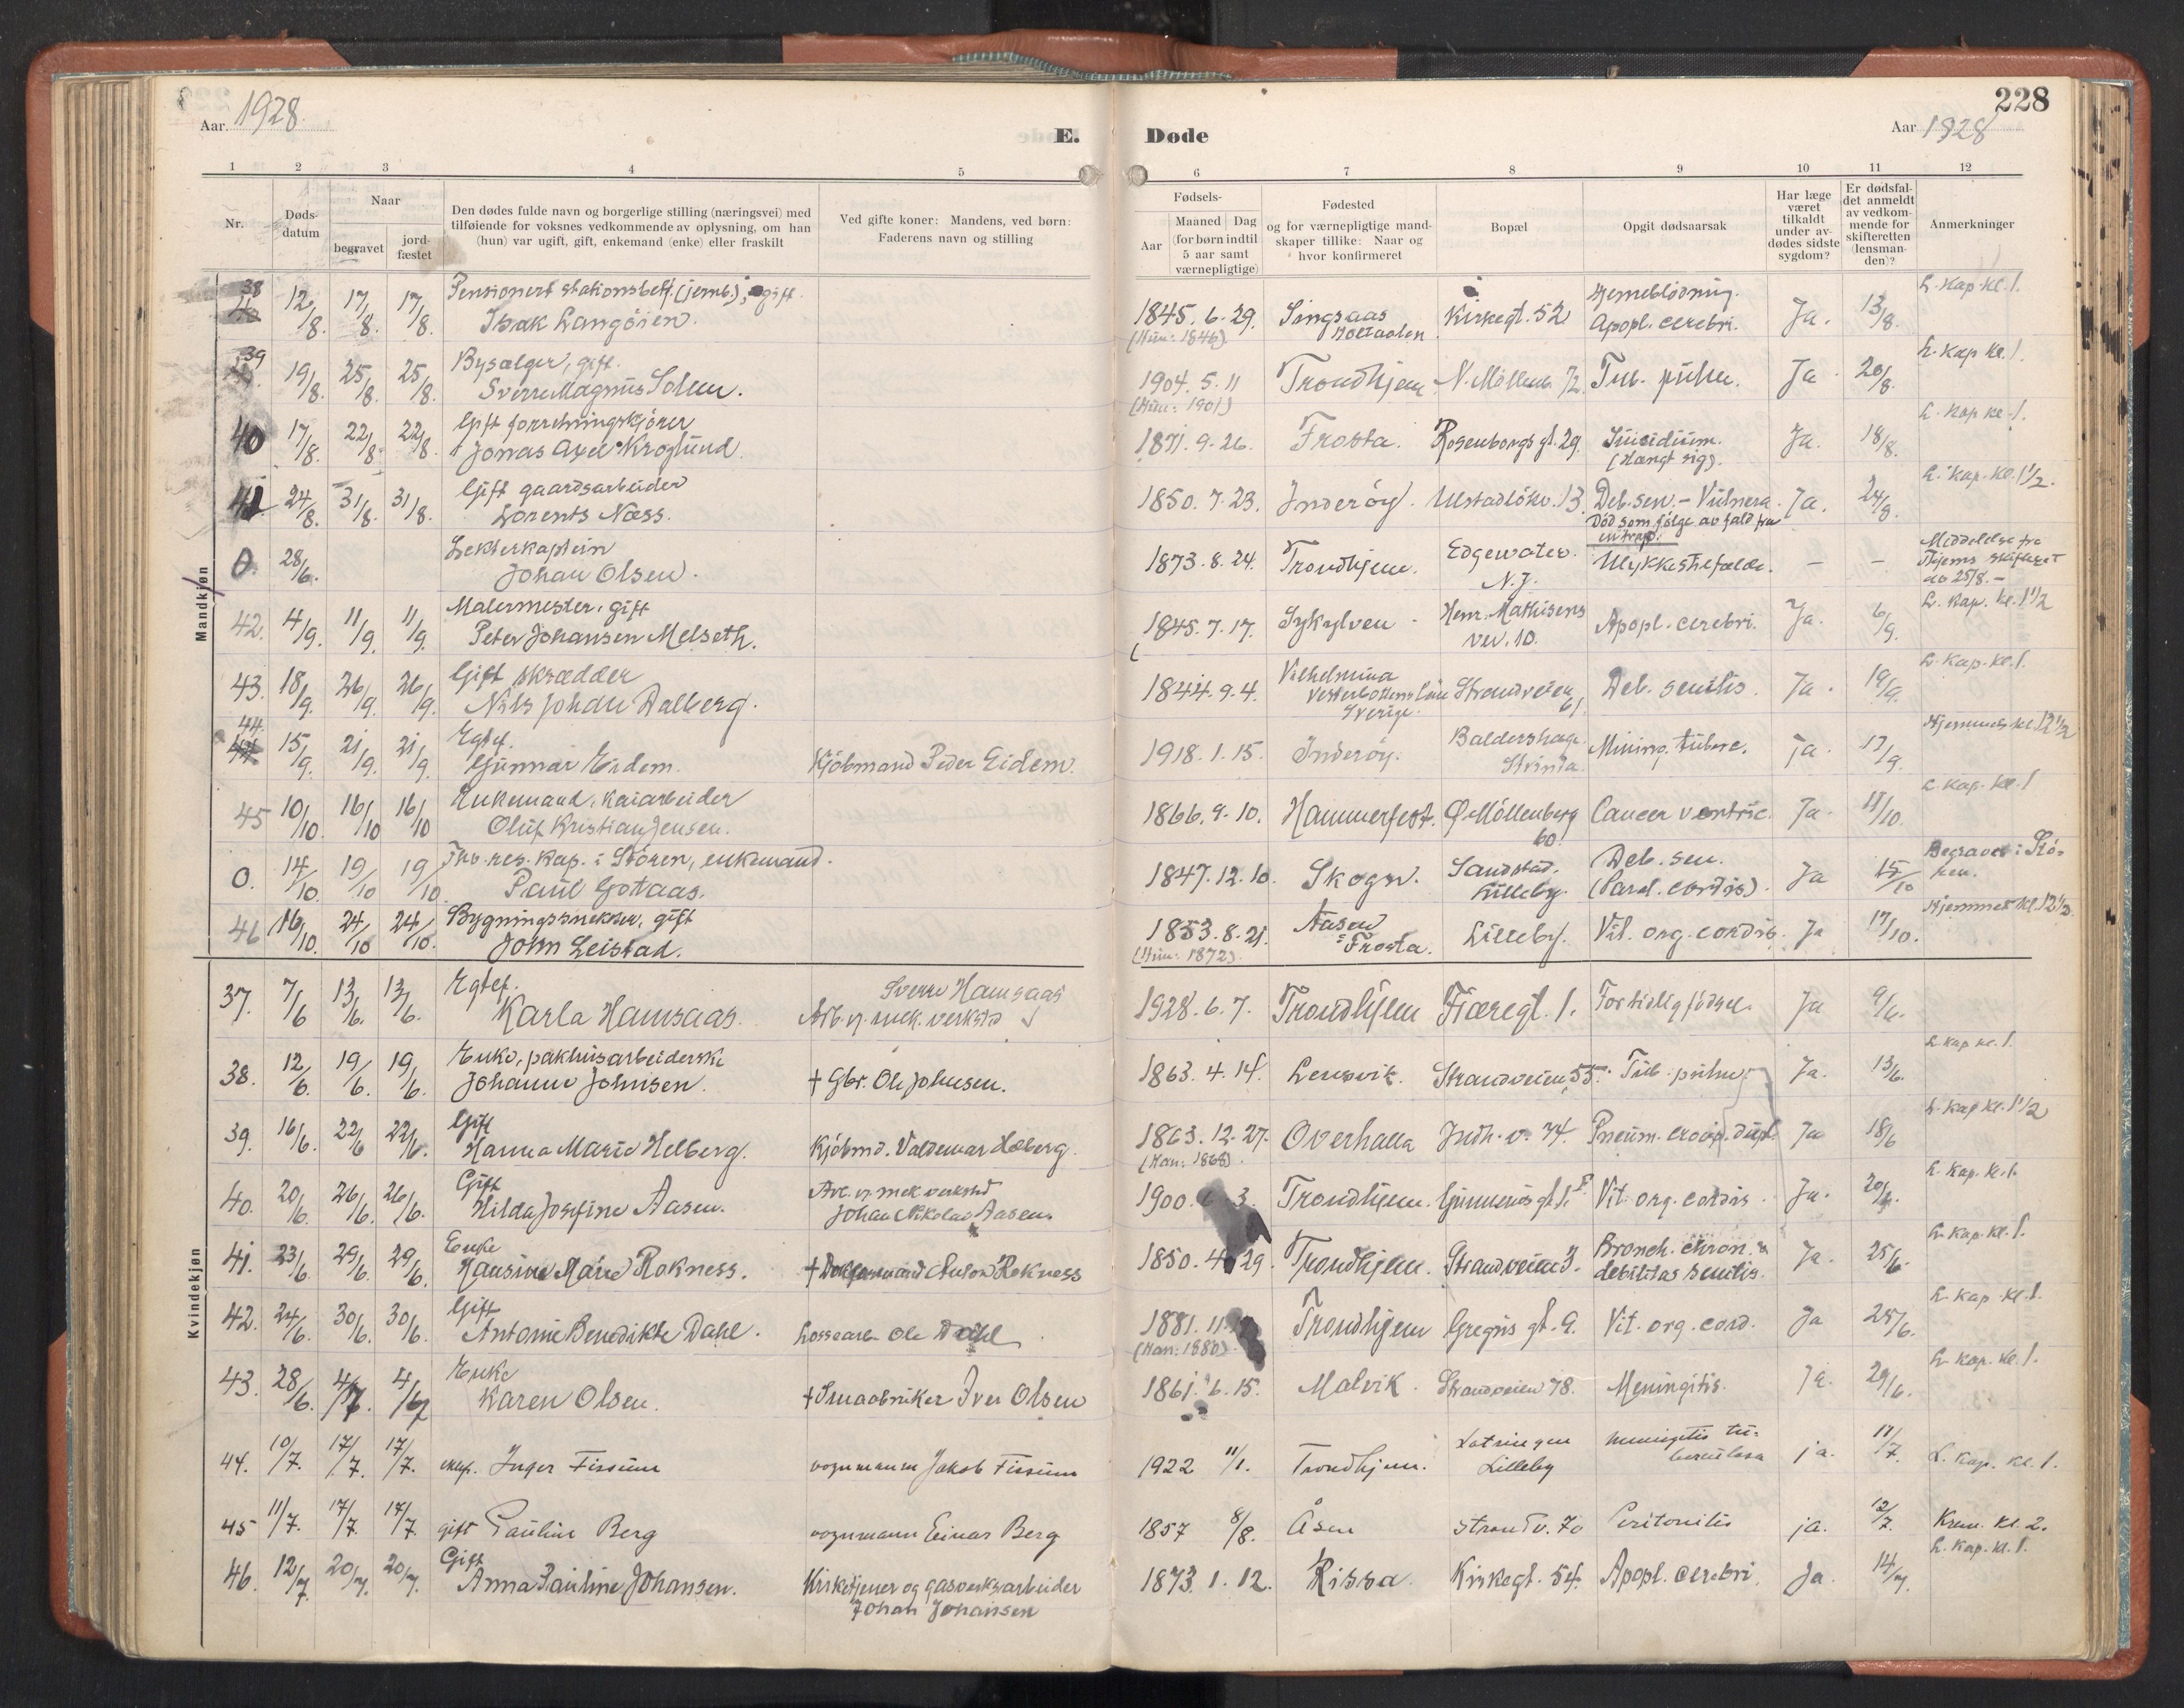 228
Aar. 1928.
E. Døde
Aar 1928
1 2 3 4 5 6 7 8 9 10 11 12
Nr.
Døds-
datum
Naar
begravet
jord-
fæstet
Den dødes fulde navn og borgerlige stilling (næringsvei) med
tilføiende for voksnes vedkommende av oplysning, om han
(hun) var ugift, gift, enkemand (enke) eller fraskilt
Ved gifte koner: Mandens, ved børn:
Faderens navn og stilling
Fødsels-
Aar
Maaned Dag
(for børn indtil
5 aar samt
værnepligtige)
Fødested
og for værnepligtige mand-
skaper tillike: Naar og
hvor konfirmeret
Bopæl
Opgit dødsaarsak
Har læge
været
tilkaldt
under av-
dødes sidste
sygdom?
Er dødsfal-
det anmeldt
av vedkom-
mende for
skifteretten
(lensman-
den)?
Anmerkninger
Mandkjøn
38 12/8. 17/8. 17/8. Pensionert stationsbetj. (jernb.), gift.
Isak Langöien. 1845. 6. 29. Singsaas Kirkegt. 52 Hjerneblödning. Apopl. cerebri. Ja. 13/8. L. Kap. kl. 1.
(Min: 1846) Holtaalen
39 19/8. 25/8. 25/8. Bysælger, gift.
Sverre Magnus Solem. 1904. 5. 11 Trondhjem N. Möllenb. 72. Tub. pulm. Ja. 20/8. L. Kap kl. 1.
40 17/8. 22/8. 22/8. Gift forretningskjörer
Jonas Axel Kroglund. 1871. 9. 26. Frosta. Rosenborgs gt. 29. Suicidium. Ja. 18/8. L. Kap kl. 1.
(Hængt sig).
41 24/8. 31/8. 31/8. Gift gaardsarbeider
Lorents Næss. 1850. 7. 23. Inderöy. Ulstadlökv. 13. Deb. sen. - Vulnera. Ja. 24/8. L. Kap. kl. 1 1/2.
Död som fölge av fald fra
en trap.
0. 28/6. Lekterkaptein
Johan Olsen. 1873. 8. 24. Trondhjem. Edgewater. N.J. Ulykkestilfælde. - - Middelelse fra
Thjems skifteret
av 25/8. -
42. 4/9. 11/9. 11/9. Malermester, gift
Peter Johansen Melseth. 1845. 7. 17. Sykylven - Henr. Mathisens vei. 10. Apopl. cerebri. Ja. 6/9. L. Kap. kl. 1 1/2
43. 18/9. 26/9. 26/9. Gift skrædder
Nils Johan Dalberg. 1844. 9. 4. Vilhelmina Vesterbottens län Sverige. Strandveien 61. Deb. senilis. Ja. 19/9. L. Kap. kl. 1.
44. 15/9. 21/9. 21/9. Egtef.
Gunnar Eidem. Kjöbmand Peder Eidem. 1918. 1. 15. Inderöy. Baldershage. Strinda. Mining. tuberc. ja. 17/9. Hjemmets kl. 12 1/2
45 10/10. 16/10 16/10 Enkemand, kaiarbeider
Oluf Kristian Jensen. 1866. 9. 10. Hammerfest. Ø. Möllenberg 60. Cancer ventric. Ja. 11/10. L. Kap. kl. 1
0. 14/10. 19/10 19/10. Fhv. res. kap. i Stören, enkemand.
Paul Gotaas. 1847. 12. 10. Skogn. Sandstad. Lilleby. Deb. sen. Ja 15/10 Begravet i Stö-
(Paral. cordis). ren.
46 16/10. 24/10 24/10. Bygningssnekker, gift
John Leistad. 1853. 8. 21. Aasen i Frosta. Lilleby. Vit. org. cordis. Ja 17/10. Hjemmet kl. 12 1/2.
(Min: 1872)
Kvindekjøn
37. 7/6 13/6. 13/6. Egtef. Sverre Hamsaas
Karla Hamsaas. Arb. v. mek. verksted 1928. 6. 7. Trondhjem Fjæregt. 1. For tidlig födsel. Ja 9/6.
38. 12/6 19/6. 19/6. Enke, pakhusarbeiderske
Johanne Johnsen. + Gbr. Ole Johnsen. 1863. 4. 14. Lensvik. Strandveien 55. Tub. pulm. Ja. 13/6. L. Kap kl. 1.
39. 16/6. 22/6 22/6. Gift
Hanna Marie Helberg. Kjöbmd. Valdemar Helberg. 1863. 12. 27. Overhalla Indh. v. 74. Pneum. croup. dupl. Ja 18/6 L. Kap kl. 1 1/2
(Man: 1868).
40. 20/6. 26/6. 26/6. Gift Arb. v. mek. verksted
Hilda Josefine Aasen. Johan Nikolai Aasen. 1900. 3. Trondhjem. Gunnerus gt. 1. Vit. org. cordis. Ja. 20/6. L. Kap. kl. 1.
41. 23/6. 29/6. 29/6. Enke
Hansine Marie Rokness. + Anton Rokness 1850. 4. 29. Trondhjem. Strandveien 3. Bronch. chron. & debilitas senilis. Ja. 25/6. L. Kap. kl. 1.
42. 24/6. 30/6. 30/6. Gift
Antonie Benedikte Dahl. Lossearb. Ole Dahl 1881. 11. Trondhjem Gregus gt. 9. Vit. org. cord. Ja 25/6. L. Kap kl. 1.
(Man: 1880).
43. 28/6. 4/7. 4/7 Enke
Karen Olsen. + Smaabruker Iver Olsen 1861. 6. 15. Malvik. Strandveien 78. Meningitis. Ja. 29/6. L. Kap. kl. 1.
44. 10/7. 17/7. 17/7. Inger Fissum vognmann Jakob Fissum 1922 11/1. Trondhjem. Lilleby meningitis tu-
berculosa ja. 11/7. L. Kap. kl. 1.
45 11/7. 17/7. 17/7. gift Pauline Berg vognmann Einar Berg 1857 8/8. Åsen Strandv. 70 Peritonitis ja. 12/7. Krem. Kl. 2.
46. 12/7. 20/7. 20/7. Gift
Anna Pauline Johansen. Kirketjener og gasverksarbeider 1873. 1. 12. Rissa. Kirkegt. 54. Apopl. cerebri. Ja. 14/7. L. Kap. kl. 1.
Johan Johansen